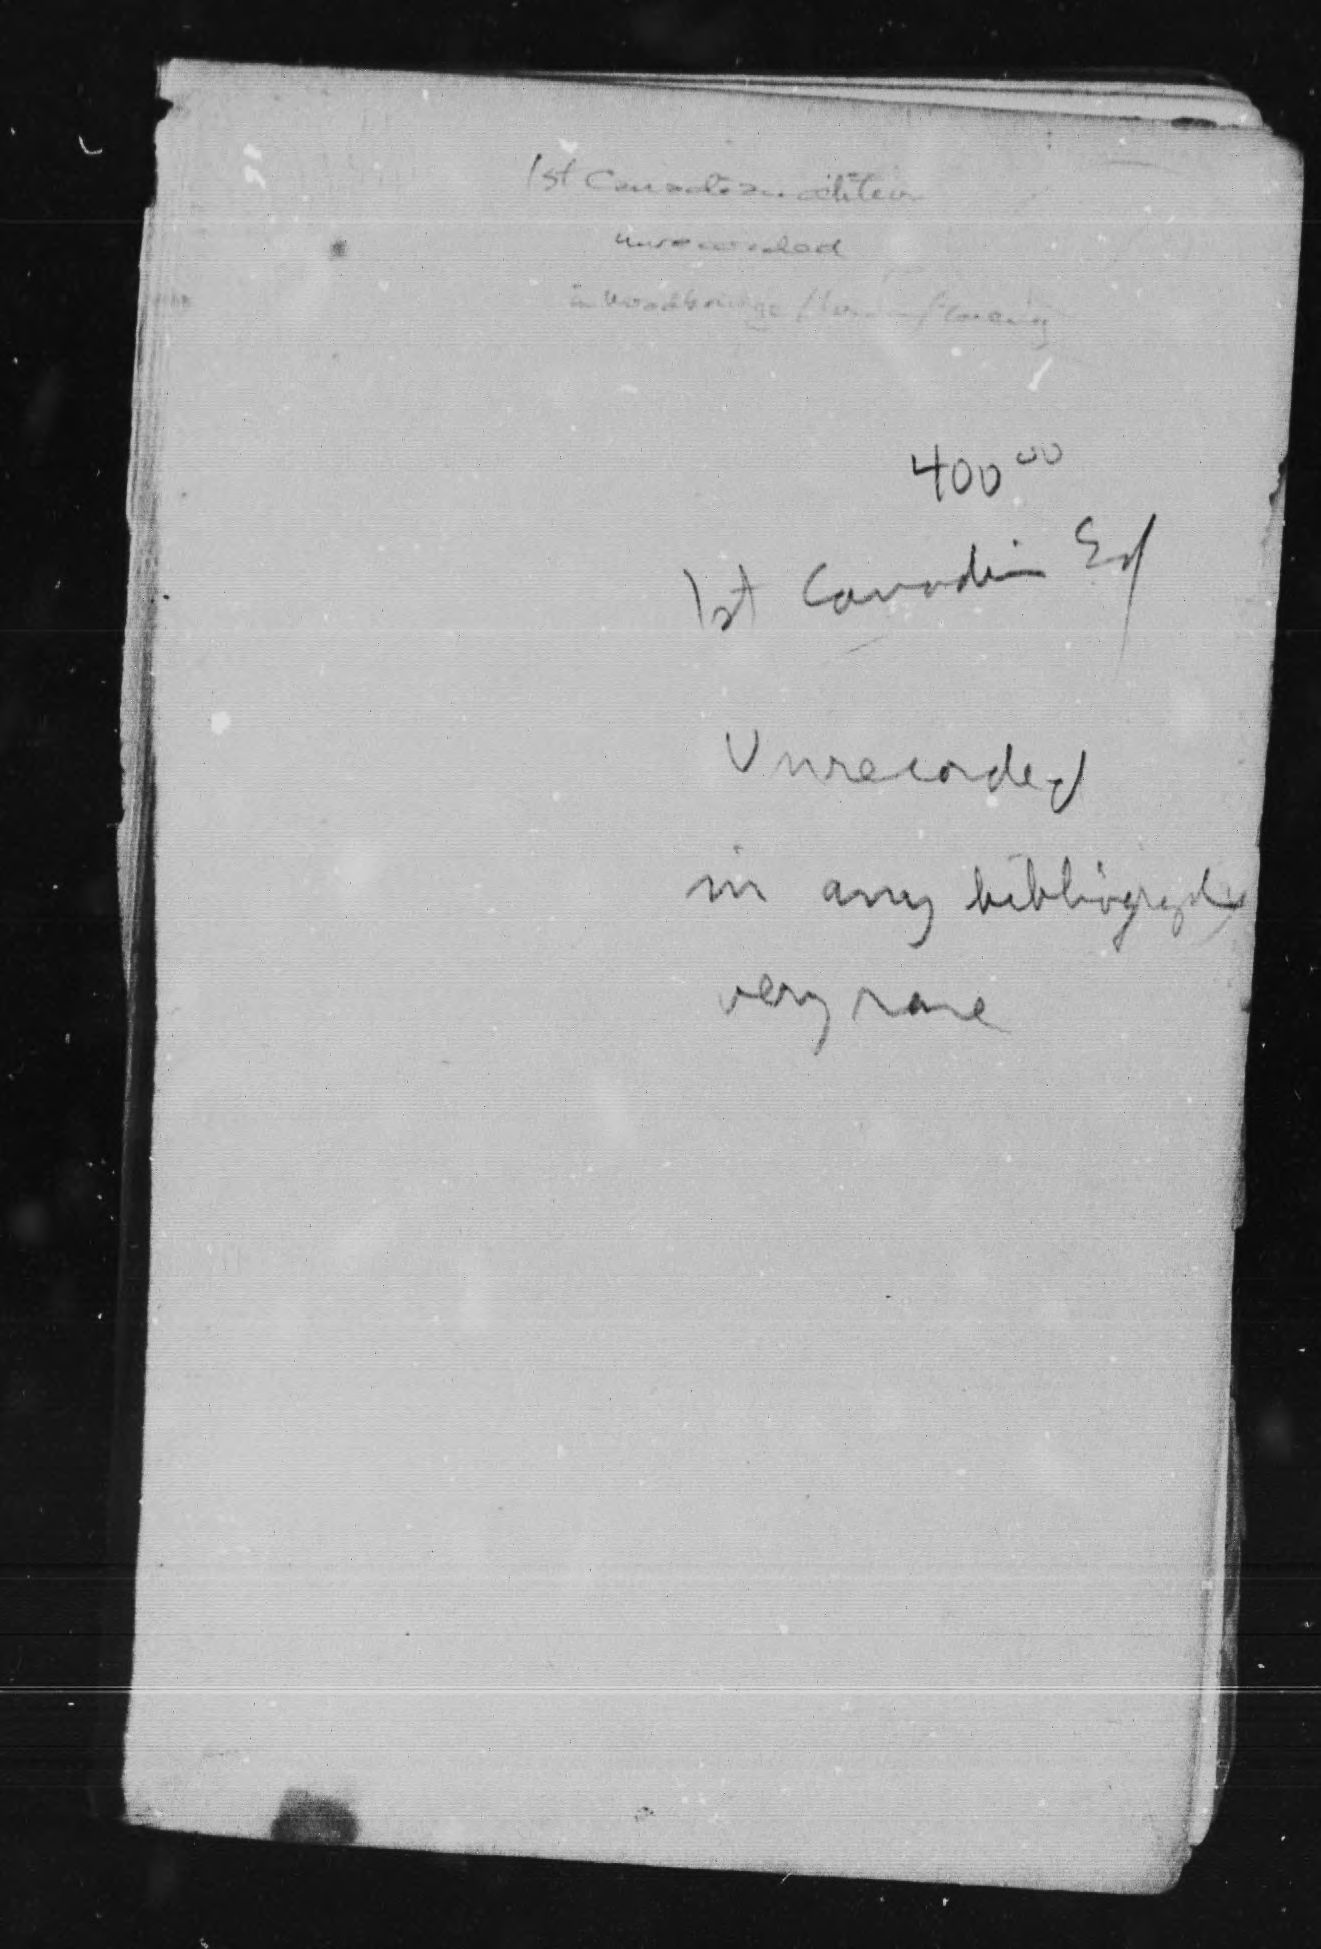 1st Canadian edition
unrecorded
in Woodbridge /
400 00
1st Canadian Ed
Unrecorded
in any bibliography
very rare